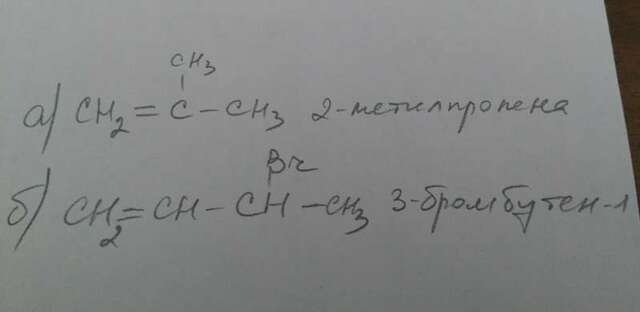 CH3
а) CH2=C-CH3 2-метилпропена
Br
б) CH2=CH-CH-CH3 3-бромбутен-1